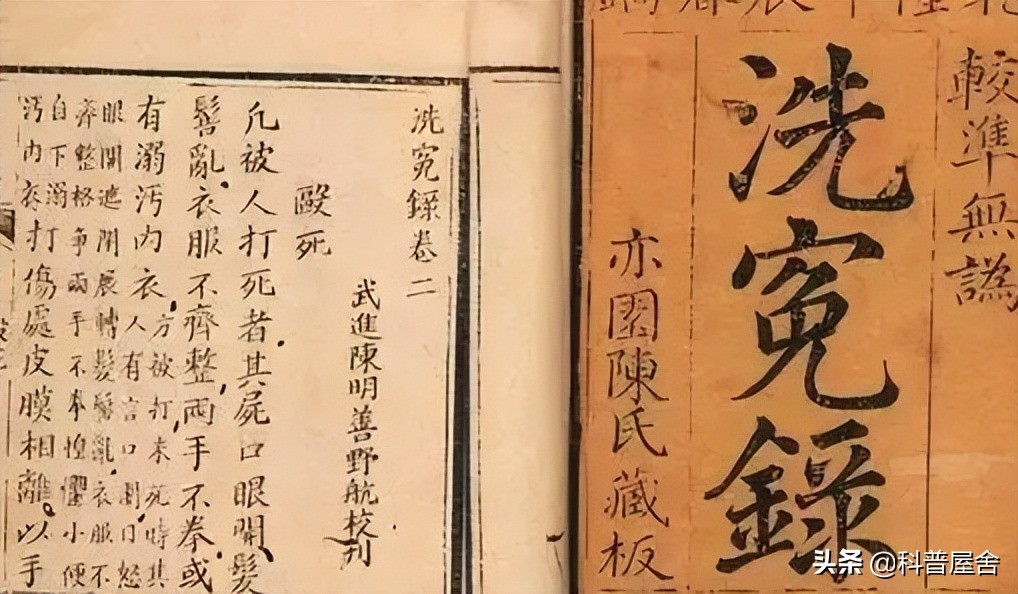 較準無譌
洗冤錄
亦園陳氏藏板
洗冤錄卷二
武進陳明善野航校刋
毆死
凡被人打死者。其屍口眼開、髮
髻亂、衣服不齊整、兩手不拳、或
有溺汚内衣、方被打未死時其
人有言口開日怒
眼開遮閉展轉髮髻亂衣服不
齊整格爭兩手不拳惶懼小便
自下溺
汚内衣
打傷處皮膜相離。以手
头条 @科普屋舍